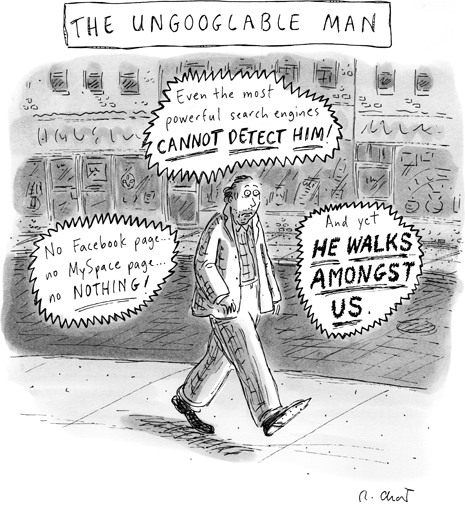 THE UNGOOGLABLE MAN
Even the most
powerful search engines
CANNOT DETECT HIM!
No Facebook page...
no MySpace page...
no NOTHING!
And yet
HE WALKS
AMONGST
US.
R. Chast